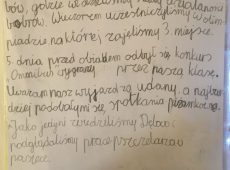 bów, gdzie widzieliśmy
bobrów. Wieczorem uczestniczyliśmy w olim
piadzie na której zajęliśmy 3. miejsce.
5 dnia przed obiadem odbył się konkurs
Omnibus wygrany przez naszą klasę.
Uważam nasz wyjazd za udany, a najbar
dziej podobały mi się spotkania
Jako jedyni zwiedziliśmy
podglądaliśmy pracę